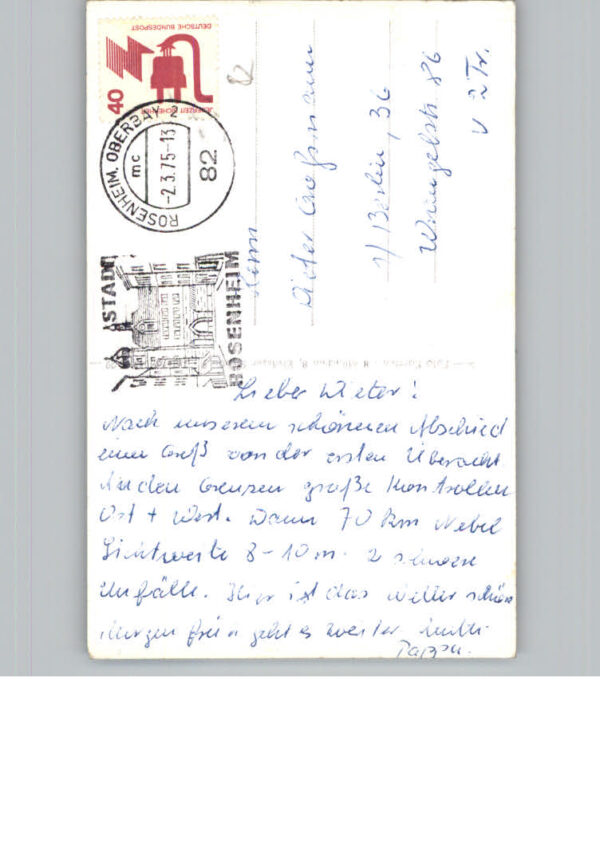 DEUTSCHE BUNDESPOST
JEDERZEIT SICHERHEIT
40
ROSENHEIM, OBERBAY 2
mc
-2.3.75-13
82
STADT
ROSENHEIM
82
Herrn
Dieter
1/Berlin, 36
Wrangelstr. 86
v 2 Tr.
Lieber Dieter!
Nach unserem schönen Abschied
einen Gruß von der ersten Übernacht.
An den Grenzen große Kontrollen
Ost + West. Dann 70 km Nebel
Sichtweite 8-10 m. 2 schwere
Unfälle. Hier ist das Wetter schön
Morgen früh geht es weiter. Mutti